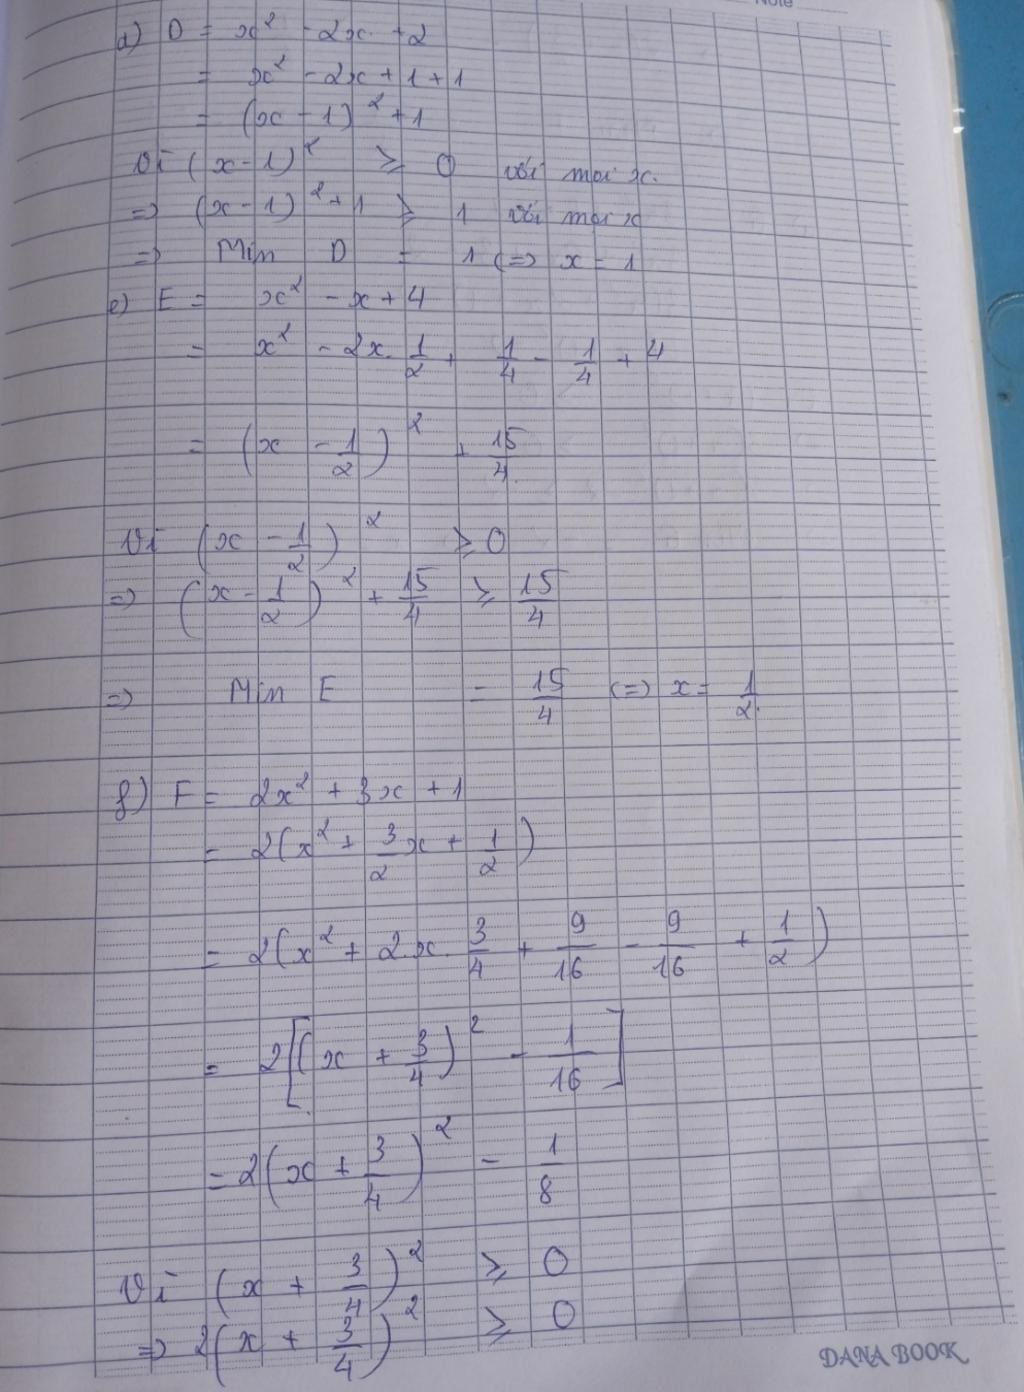 Note
d) D = x² - 2x + 2
= x² - 2x + 1 + 1
= (x - 1)² + 1
Vì (x - 1)² ⩾ 0 với mọi x.
=> (x - 1)² + 1 ⩾ 1 với mọi x
=> Min D = 1 <=> x = 1
e) E = x² - x + 4
= x² - 2x. 1/2 + 1/4 - 1/4 + 4
= (x - 1/2)² + 15/4
Vì (x - 1/2)² ⩾ 0
=> (x - 1/2)² + 15/4 ⩾ 15/4
=> Min E = 15/4 <=> x = 1/2.
f) F = 2x² + 3x + 1
= 2(x² + 3/2 x + 1/2)
= 2(x² + 2.x. 3/4 + 9/16 - 9/16 + 1/2)
= 2[(x + 3/4)² - 1/16]
= 2(x + 3/4)² - 1/8
Vì (x + 3/4)² ⩾ 0
=> 2(x + 3/4)² ⩾ 0
DANA BOOK